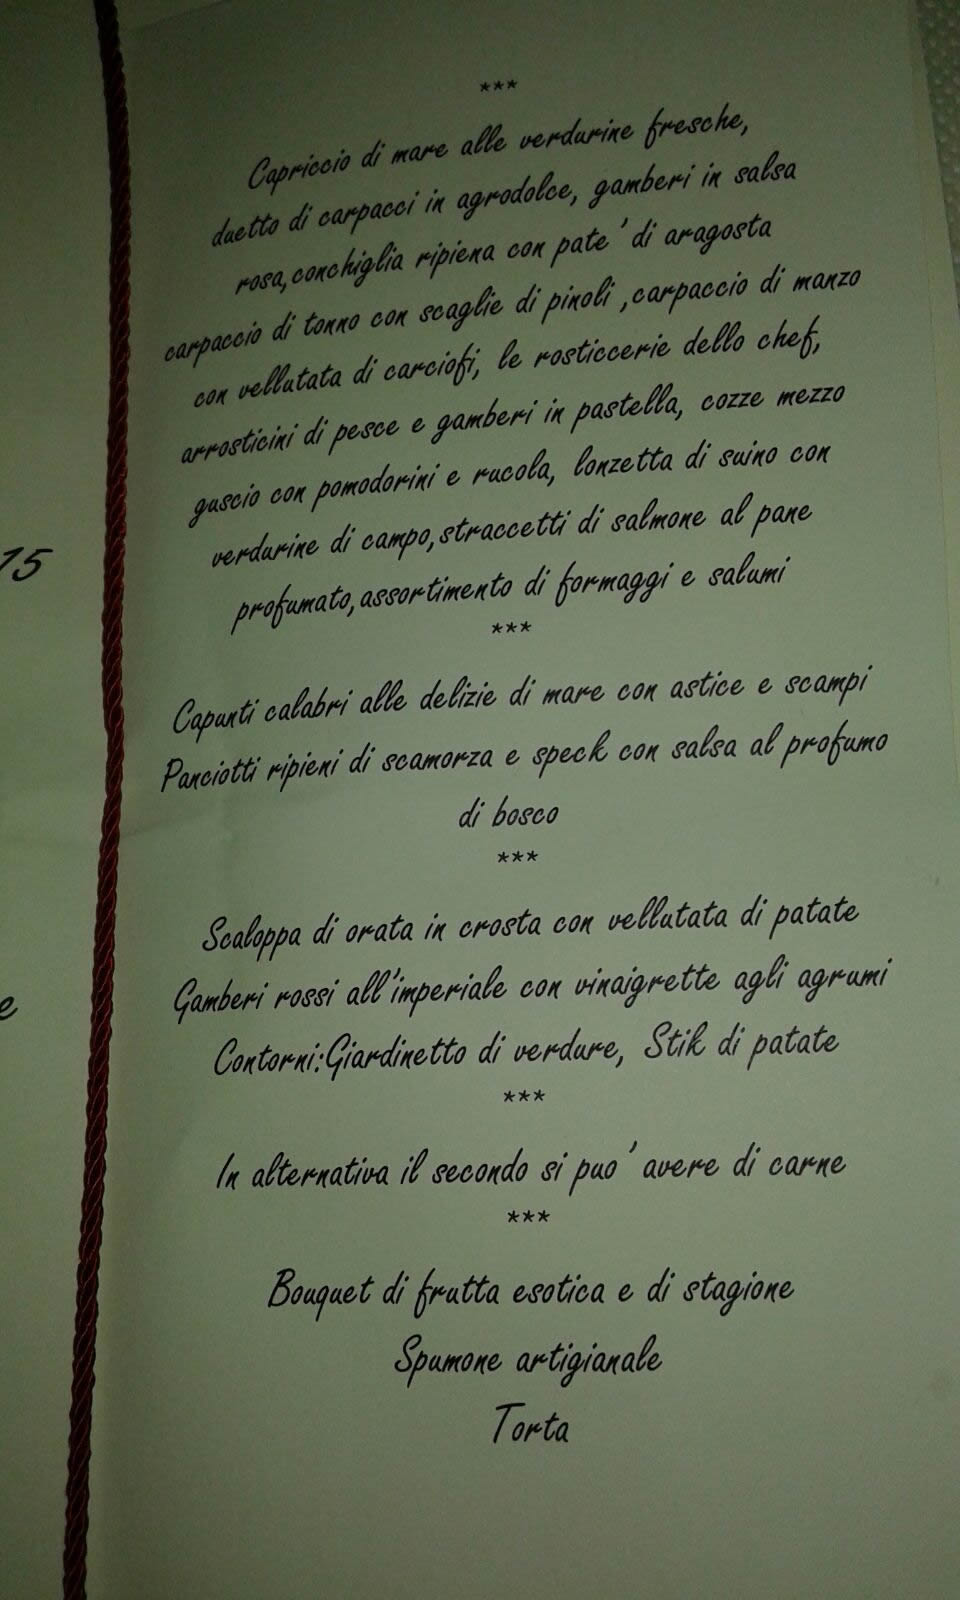 ***
Capriccio di mare alle verdurine fresche,
duetto di carpacci in agrodolce, gamberi in salsa
rosa,conchiglia ripiena con pate' di aragosta
carpaccio di tonno con scaglie di pinoli ,carpaccio di manzo
con vellutata di carciofi, le rosticcerie dello chef,
arrosticini di pesce e gamberi in pastella, cozze mezzo
guscio con pomodorini e rucola, lonzetta di suino con
verdurine di campo,straccetti di salmone al pane
profumato,assortimento di formaggi e salumi
***
Capunti calabri alle delizie di mare con astice e scampi
Panciotti ripieni di scamorza e speck con salsa al profumo
di bosco
***
Scaloppa di orata in crosta con vellutata di patate
Gamberi rossi all'imperiale con vinaigrette agli agrumi
Contorni:Giardinetto di verdure, Stik di patate
***
In alternativa il secondo si puo' avere di carne
***
Bouquet di frutta esotica e di stagione
Spumone artigianale
Torta
15
e